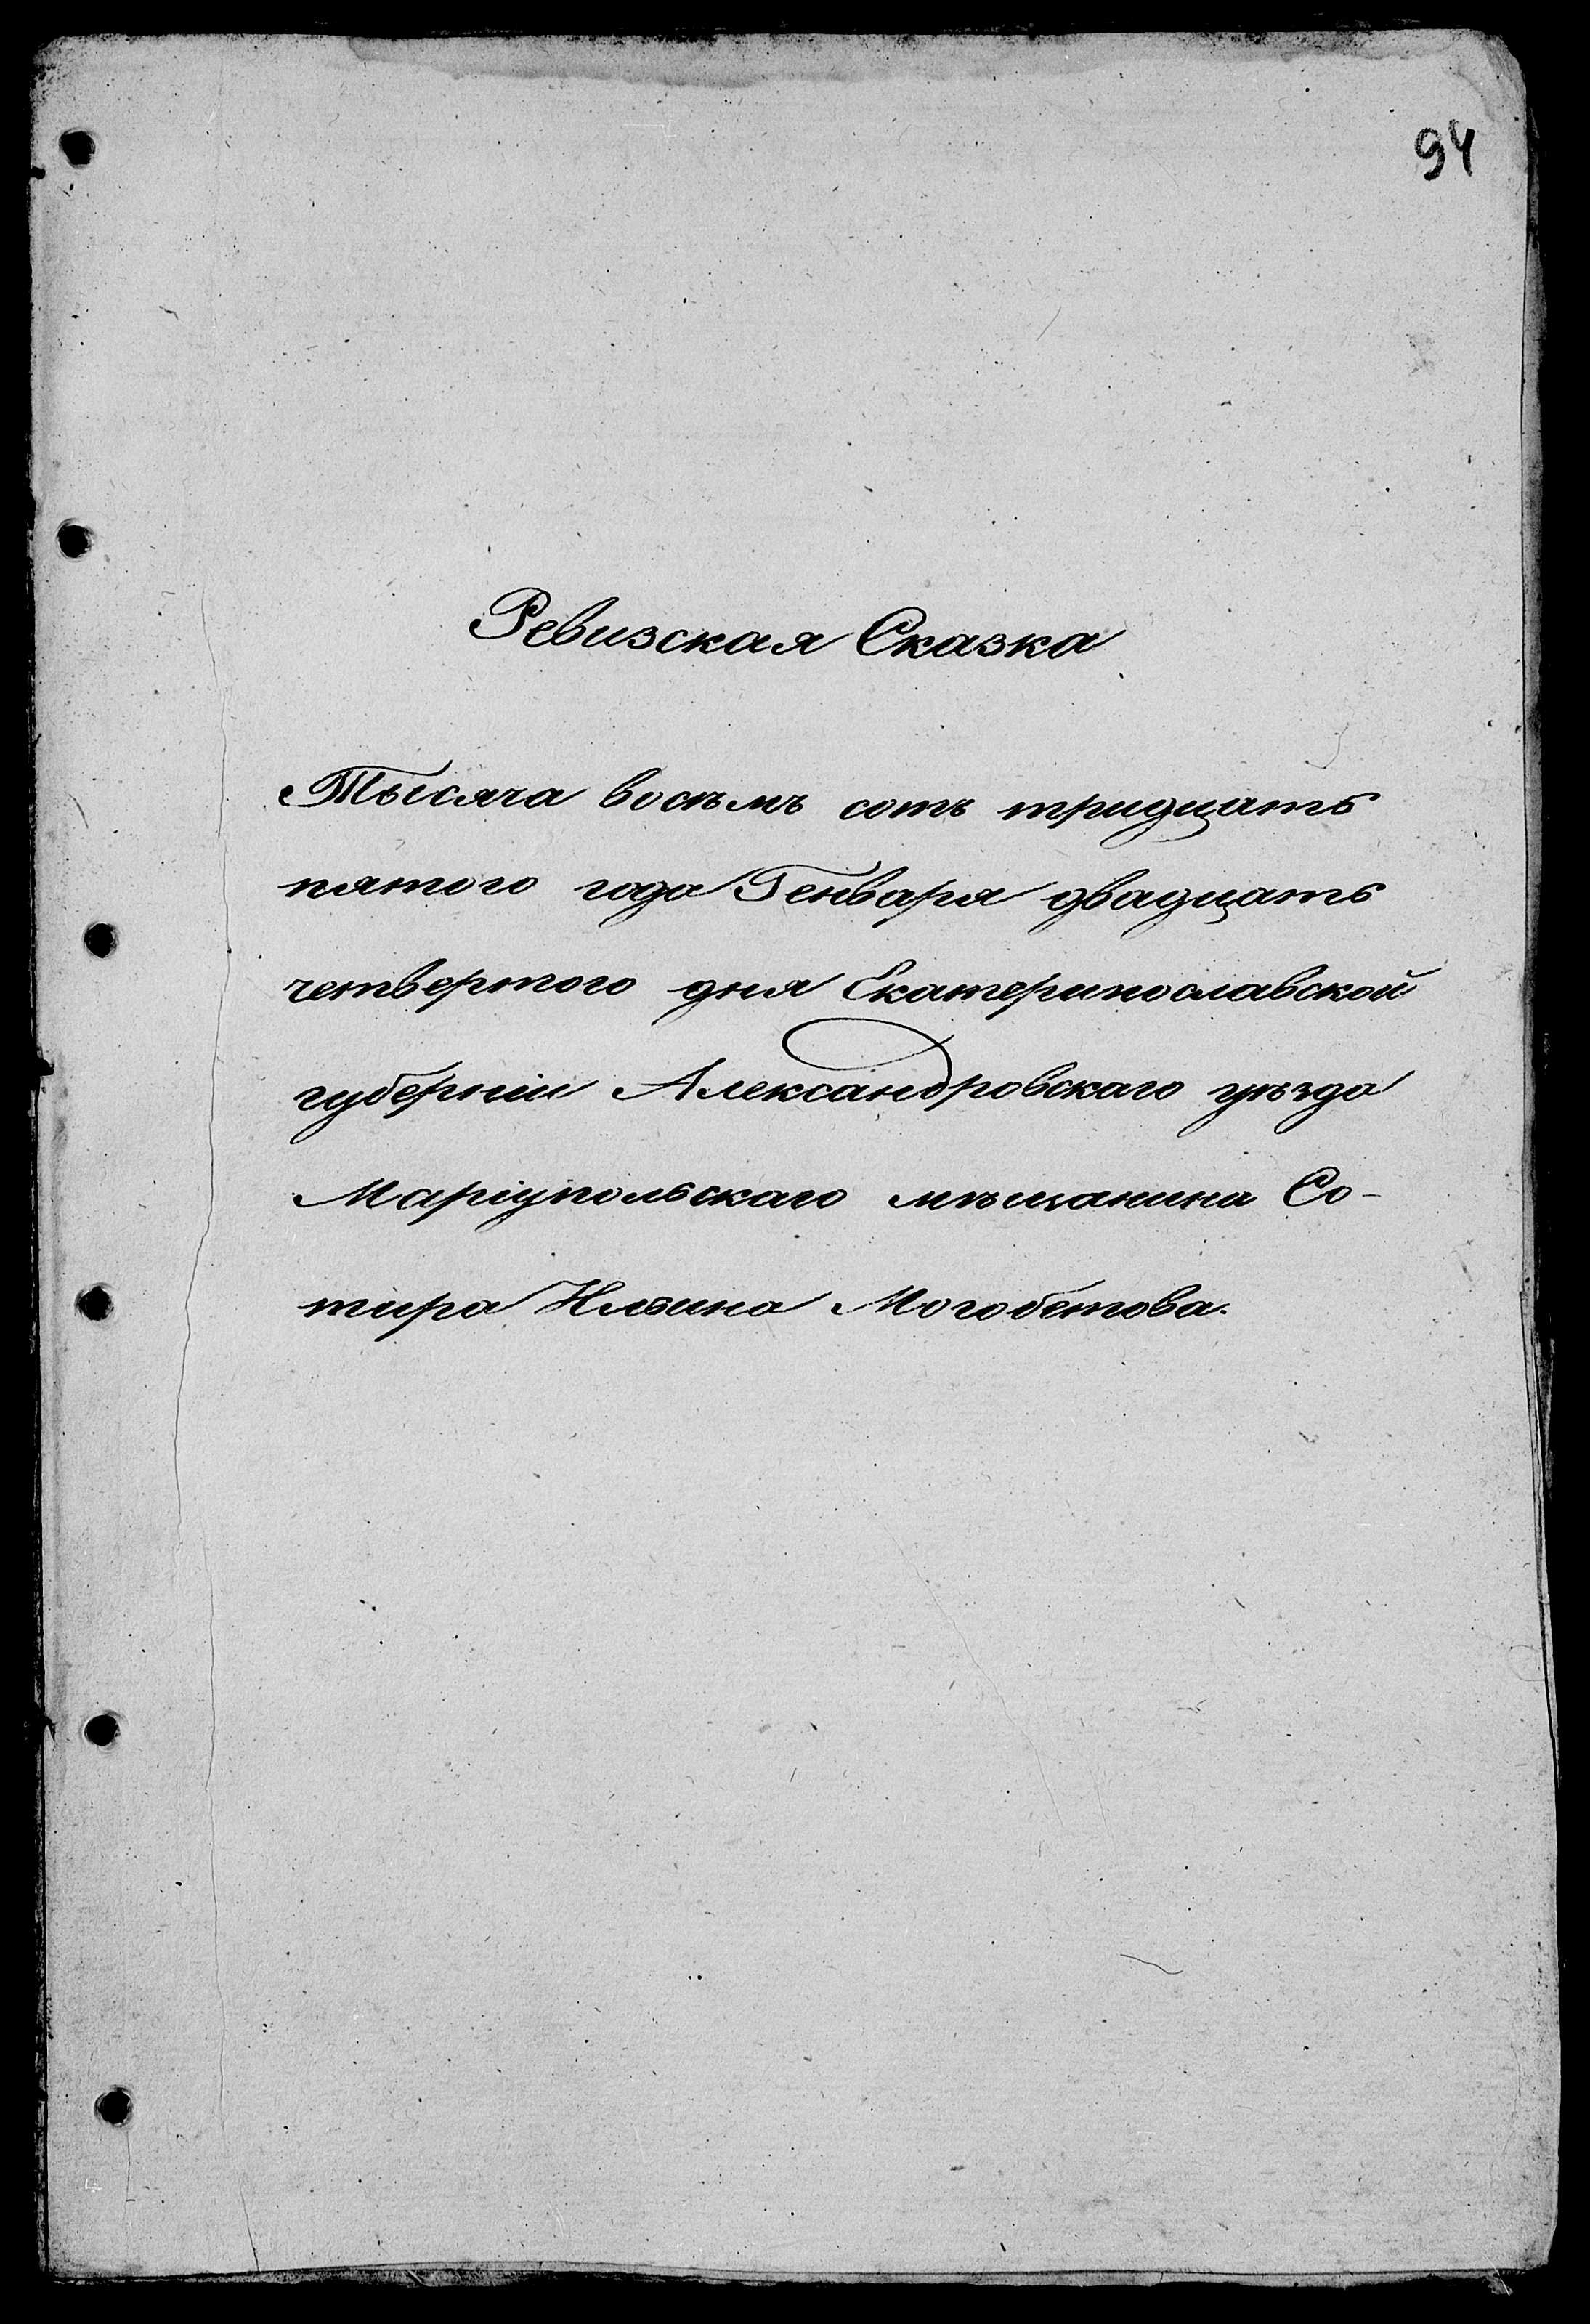 94
Ревизская Сказка
Тысяча восѣмъ сотъ тридцать
пятого года Генваря двадцать
четвертого дня Екатеринославской
губерніи Александровскаго уѣзда
Маріупольскаго мѣщанина Со-
тира Ильина Могобетова.